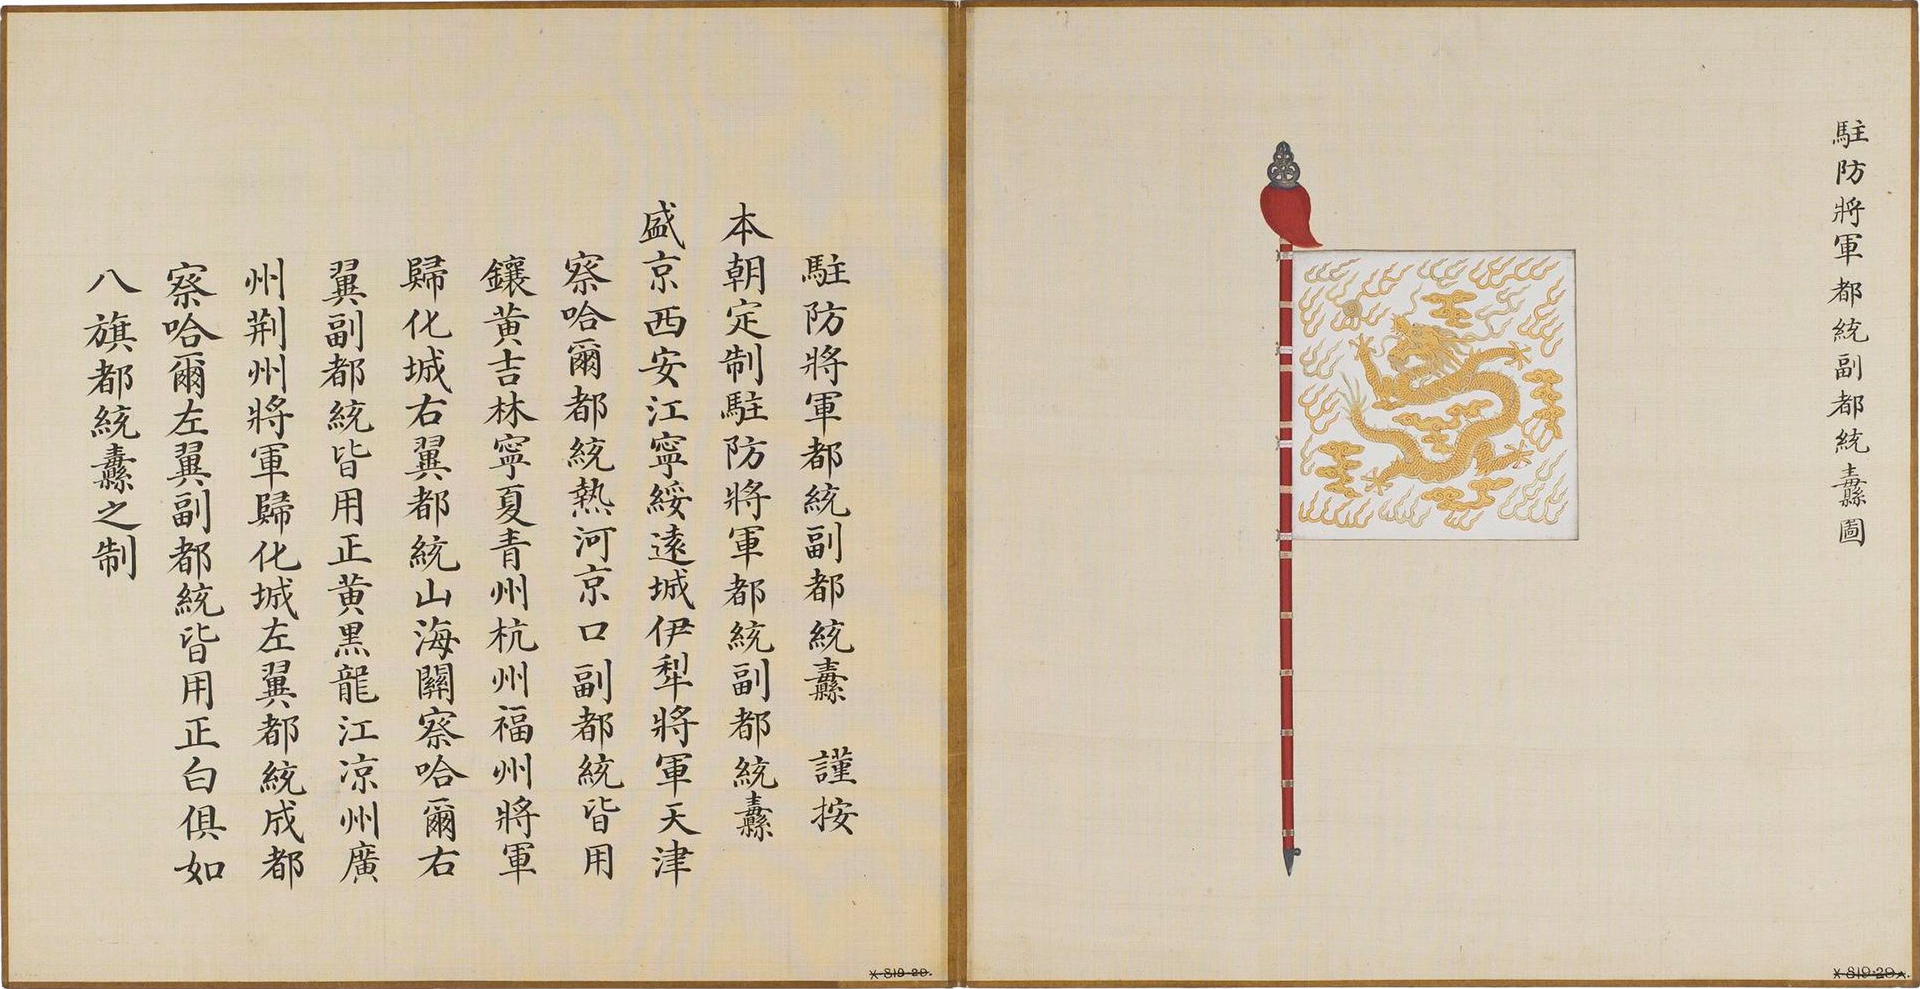 駐防將軍都統副都統纛圖
駐防將軍都統副都統纛　謹按
本朝定制駐防將軍都統副都統纛
盛京西安江寧綏遠城伊犁將軍天津
察哈爾都統熱河京口副都統皆用
鑲黃吉林寧夏青州杭州福州將軍
歸化城右翼都統山海關察哈爾右
翼副都統皆用正黃黑龍江凉州廣
州荆州將軍歸化城左翼都統成都
察哈爾左翼副都統皆用正白俱如
八旗都統纛之制
X 819-20.
X 819-20A.